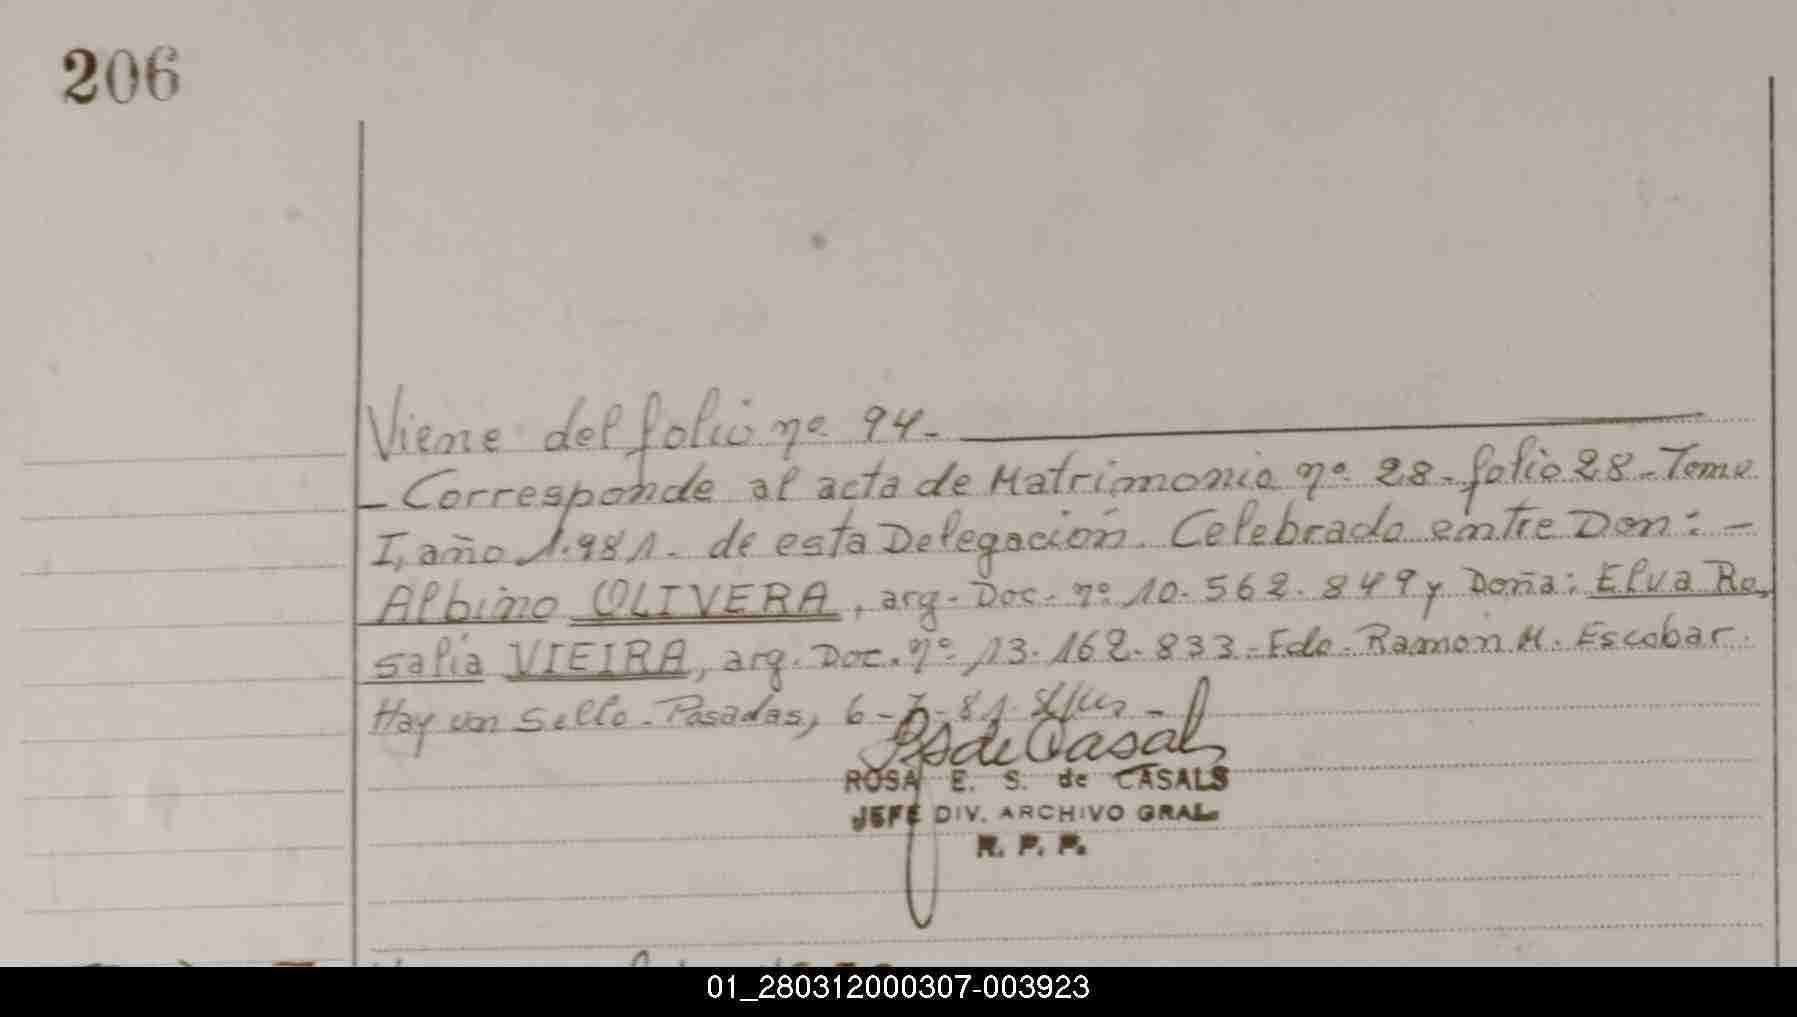 206
Viene del folio nº 94.
- Corresponde al acta de Matrimonio nº 28 - folio 28 - Tomo
I, año 1.981. de esta Delegación. Celebrado entre Don: -
Albino OLIVERA, arg. Doc. nº 10.562.849 y Doña: Elva Ro-
salia VIEIRA, arg. Doc. nº 13.162.833 - Fdo. Ramon M. Escobar.
Hay un Sello - Posadas, 6-7-81.
ROSA E. S. de CASALS
JEFE DIV. ARCHIVO GRAL.
R. P. P.
01_280312000307-003923